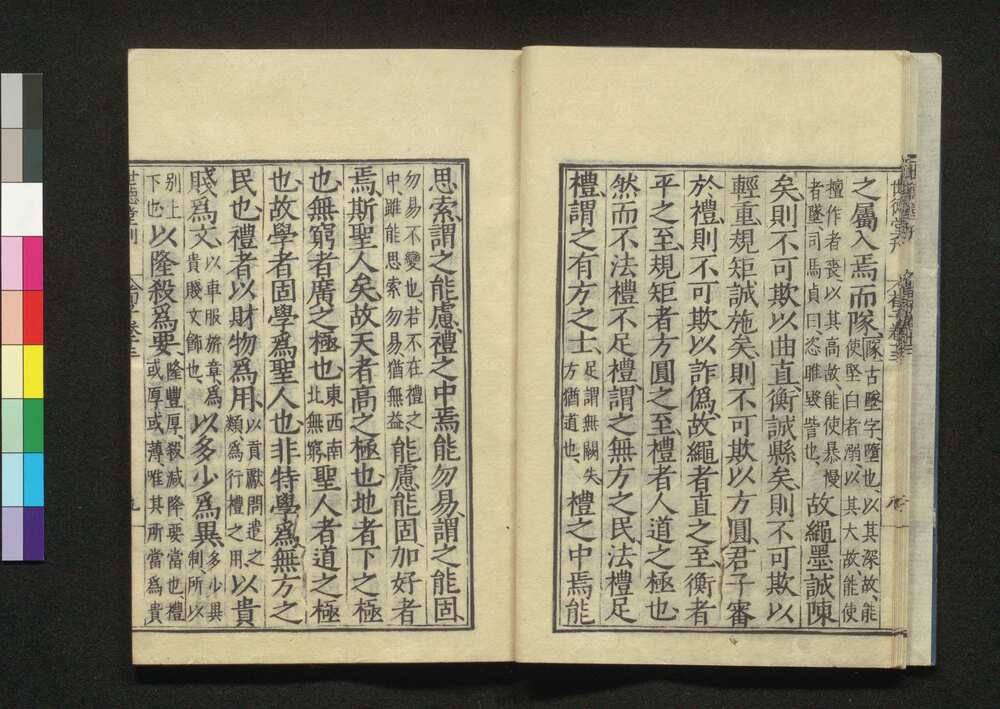 之屬入焉而隊隊古墜字墮也以其深故能使堅白者溺以其大故能使
擅作者喪以其高故能使暴慢者墜司馬貞曰恣睢毀訾也故繩墨誠陳
矣則不可欺以曲直衡誠縣矣則不可欺以
輕重規矩誠施矣則不可欺以方圓君子審
於禮則不可欺以詐僞故繩者直之至衡者
平之至規矩者方圓之至禮者人道之極也
然而不法禮不足禮謂之無方之民法禮足
禮謂之有方之士足謂無闕失方猶道也禮之中焉能
思索謂之能慮禮之中焉能勿易謂之能固
勿易不變也若不在禮之中雖能思索勿易猶無益能慮能固加好者
焉斯聖人矣故天者高之極也地者下之極
也無窮者廣之極也東西南北無窮聖人者道之極
也故學者固學爲聖人也非特學爲無方之
民也禮者以財物爲用以貢獻問遺之類爲行禮之用以貴
賤爲文以車服旂章爲貴賤文飾也以多少爲異多少異制所以
別上下也以隆殺爲要隆豐厚殺減降要當也禮或厚或薄唯其所當爲貴